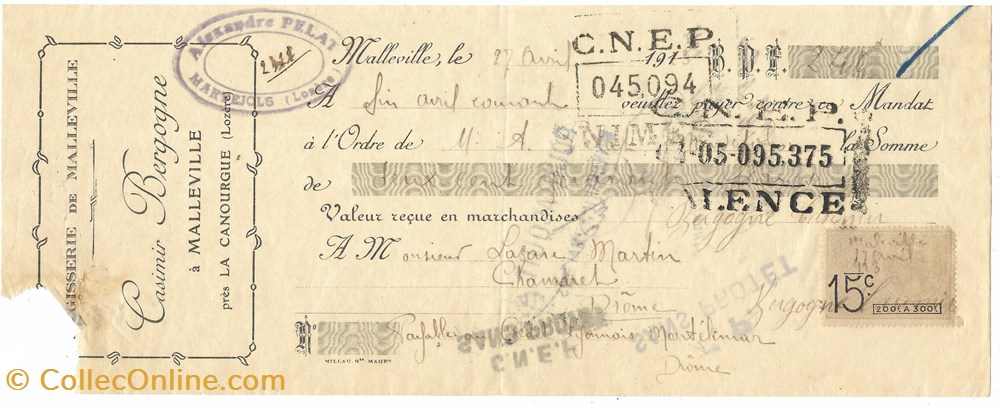 MÉGISSERIE DE MALLEVILLE
Casimir Bergogne
à MALLEVILLE
près LA CANOURGUE (Lozère)
Alexandre PELAT
MARVEJOLS (Lozère)
Malleville, le 27 avril 191
B.P.F. 248
C.N.E.P.
045,094
NIMES
A fin avril courant veuillez payer contre ce Mandat
à l'Ordre de M. A. la Somme
C.N.E.P.
05-095,375
VALENCE
de deux cent quarante
Valeur reçue en marchandises
Bergogne Casimir
A Monsieur Lazare Martin
Chamaret
Drôme
15c.
200f. A 300f.
Bergogne Casimir
SANS PROTET
No
Payable au Cdt Lyonnais Montélimar
Drôme
C.N.E.P.
MILLAU, Gde MAURY
© CollecOnline.com